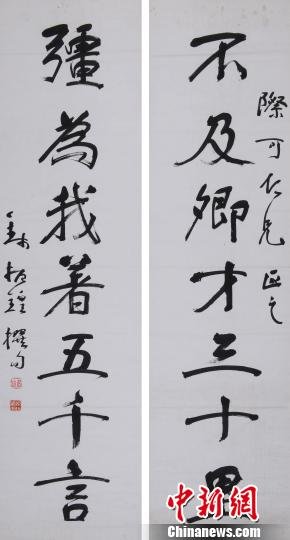 際可仁兄正之
不及卿才三十里
彊為我着五千言
振鍠
中新網
www.chinanews.com